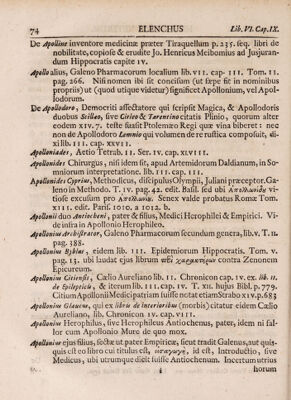 74 ELENCHUS Lib. VI. Cap. IX.
De Apolline inventore medicinæ præter Tiraquellum p. 235. seq. libri de
nobilitate, copiose & erudite Jo. Henricus Meibomius ad Jusjuran-
dum Hippocratis capite IV.
Apollo alius, Galeno Pharmacorum localium lib. VII. cap. III. Tom. II.
pag. 266. Nisi nomen ibi sit concisum (ut sæpe fit in nominibus
propriis) ut (quod utique videtur) significet Apollonium, vel Apol-
lodorum.
De Apollodoro, Democriti affectatore qui scripsit Magica, & Apollodoris
duobus sive Citieo & Tarentino citatis Plinio, quorum alter
eodem XIV. 7. teste suasit Ptolemæo Regi quæ vina biberet: nec
non de Apollodoro Lemnio qui volumen de re rustica composuit, di-
xi lib. III. cap. XXVII.
Apolloniades, Aetio Tetrab. II. Ser. IV. cap. XLVIII.
Apollonides Chirurgus, nisi idem sit, apud Artemidorum Daldianum, in So-
mniorum interpretatione. lib. III. cap. III.
Apollonides Cyprius, Methodicus, discipulus Olympii, Juliani præceptor. Ga-
leno in Methodo. T. IV. pag. 42. edit. Basil. sed ubi
vitiose excusum pro Senex valde probatus Romæ Tom.
XIII. edit. Paris. 1010. a. 1012. b.
Apollonii duo Antiocheni, pater & filius, Medici Herophilei & Empirici. Vi-
de infra in Apollonio Herophileo.
Apollonius Archistrator, Galeno Pharmacorum secundum genera, lib. V. T. II.
pag. 388.
Apollonius Byblas, eidem lib. III. Epidemiorum Hippocratis. Tom. V.
pag. 13. ubi laudat ejus librum contra Zenonem
Epicureum.
Apollonius Citiensis, Cælio Aureliano lib. II. Chronicon cap. IV. ex. lib. II.
de Epilepticis, & iterum lib. III. cap. IV. T. XII. hujus Bibl. p. 779.
Citium Apollonii Medici patriam fuisse notat etiam Strabo XIV. p. 683
Apollonius Glaucus, qui ex libris de interioribus (morbis) citatur eidem Cælio
Aureliano, lib. Chronicon IV. cap. VIII.
Apollonius Herophilus, sive Herophileus Antiochenus, pater, idem ni fal-
lor cum Apollonio Mure de quo mox.
Apollonius ejus filius, sectæ ut pater Empiricæ, sicut tradit Galenus, aut quis-
quis est eo libro cui titulus est, id est, Introductio, sive
Medicus, ubi utrumque dicit fuisse Antiochenum. Incertum utrius
horum